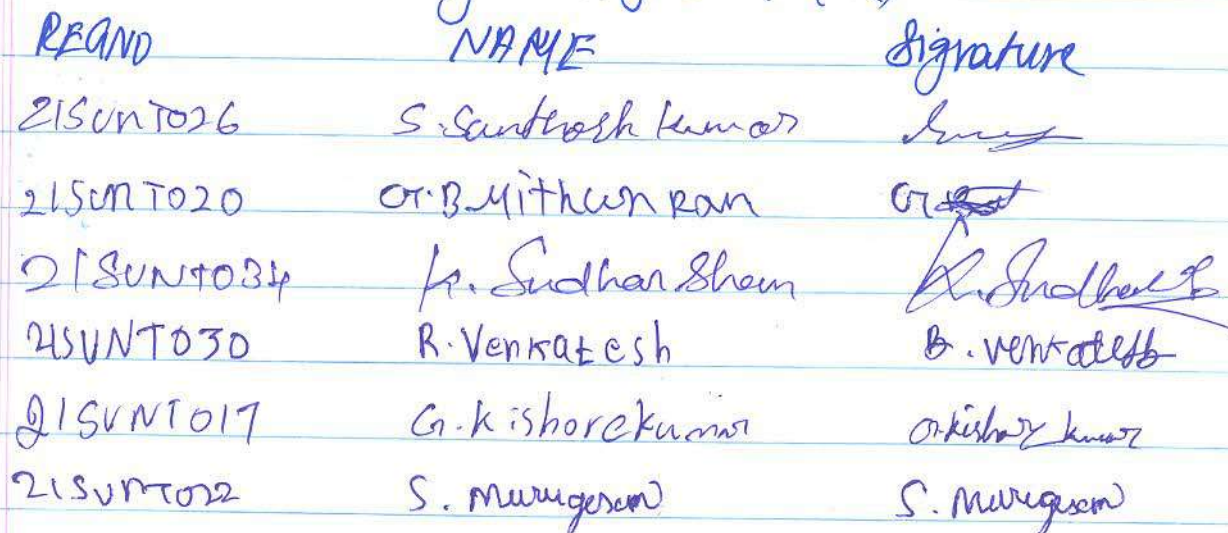 REGNO NAME Signature
21SUNT026 S. Santhosh kumar
21SUNT020 G.B. Mithun Ram
21SUNT034 K. Sudharshan K. Sudhar
21SUNT030 R. Venkatesh R. Venkatesh
21SUNT017 G. Kishorekumar G. Kishor kumar
21SUNT022 S. Murugesan S. Murugesan